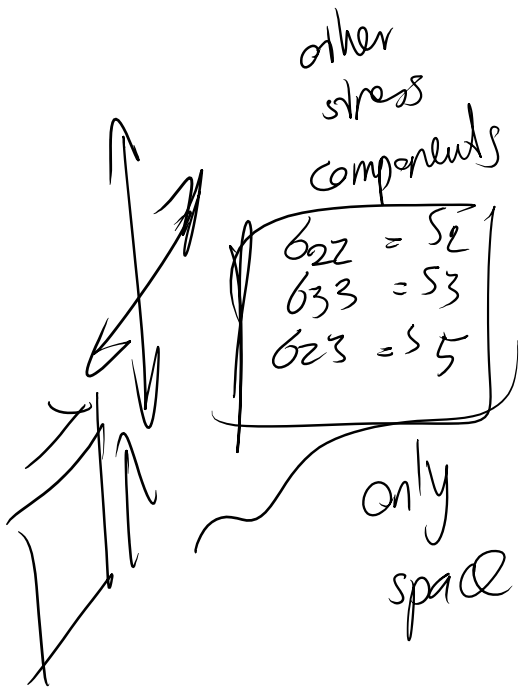 other
stress
components
σ22 = S2
σ33 = S3
σ23 = S5
only
space